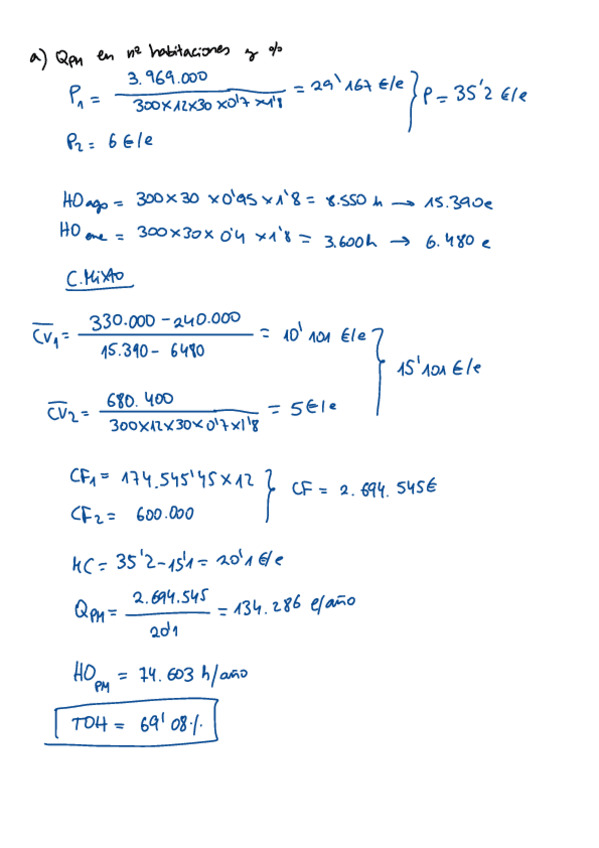 a) QPM en nº habitaciones y %
P1 = 3.969.000 / 300×12×30×0'7×1'8 = 29'167 €/e } P = 35'2 €/e
P2 = 6 €/e
HO ago = 300×30×0'95×1'8 = 8.550 h → 15.390 e
HO ene = 300×30×0'4×1'8 = 3.600 h → 6.480 e
C. Mixto
CV1 = 330.000 - 240.000 / 15.390 - 6480 = 10'101 €/e } 15'101 €/e
CV2 = 680.400 / 300×12×30×0'7×1'8 = 5 €/e
CF1 = 174.545'45 × 12 } CF = 2.694.545€
CF2 = 600.000
MC = 35'2 - 15'1 = 20'1 €/e
QPM = 2.694.545 / 20'1 = 134.286 e/año
HO PM = 74.603 h/año
TOH = 69'08%